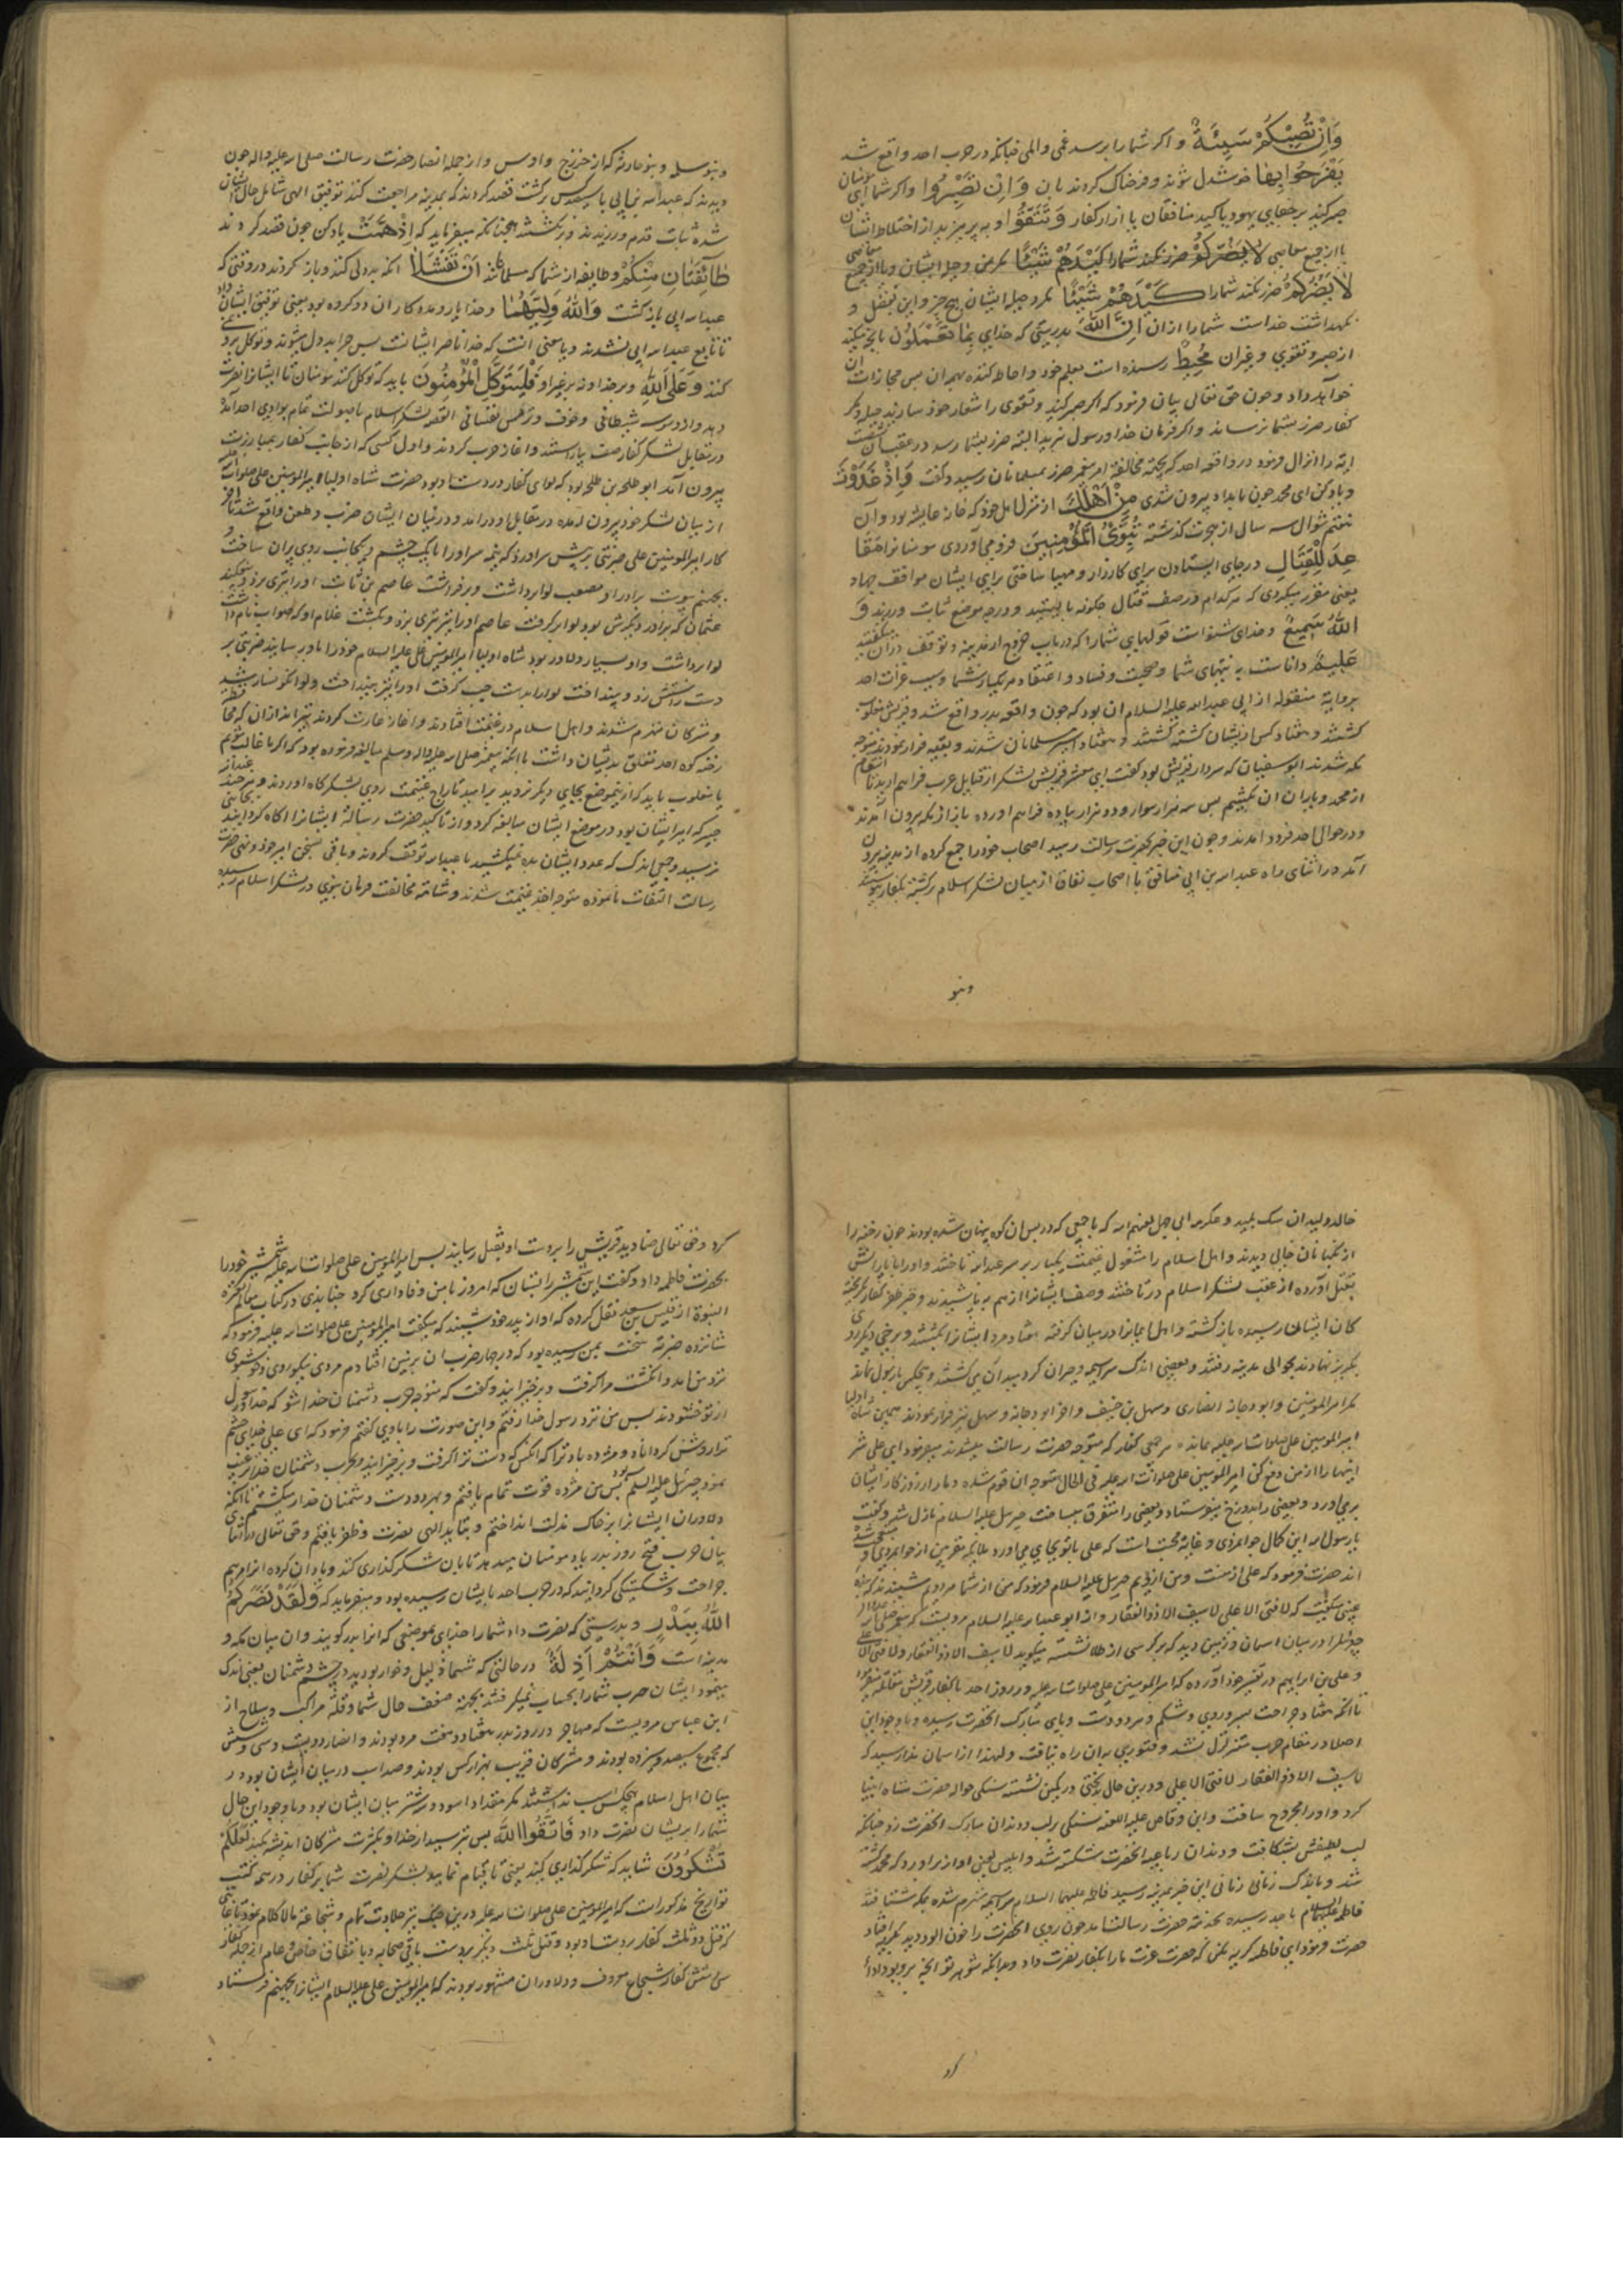 وَاِنْ تُصِبْكُمْ سَیِّئَةٌ و اکر شما را برسد غمی و المی چنانکه در حرب احد واقع شد
یَفْرَحُوا بِهَا خوشدل شوند و فرحناک کردند بان وَاِنْ تَصْبِرُوا و اکر شما ای مومنان
صبر کنید بر جفای یهود یا کید منافقان یا ازار کفار وَتَتَّقُوا و بپرهیزید از اختلاط ایشان
یا از جمیع معاصی لَا یَضُرُّكُمْ ضرر نکند شما را كَیْدُهُمْ شَیْئًا مکر و حیله ایشان
لَا یَضُرُّكُمْ ضرر نکند شما را كَیْدُهُمْ شَیْئًا مکر و حیله ایشان هیچ چیز و این بفضل و
نکهداشت خداست شما را از ان اِنَّ اللهَ بدرستی که خدای بِمَا تَعْمَلُونَ بانچه میکنید
از صبر و تقوی و غیر ان مُحِیطٌ رسیده است بعلم خود و احاطه کننده بهمه ان پس مجازات ان
خواهد داد و چون حق تعالی بیان فرمود که اکر صبر کنید و تقوی را شعار خود سازید حیله و مکر
کفار ضرر بشما نرساند و اکر فرمان خدا و رسول نبرید البته ضرر بشما رسد در عقب ان
ایه را انزال فرمود در واقعه احد که بجهة مخالفة امر پیغمبر ضرر بمسلمانان رسید و کفت وَاِذْ غَدَوْتَ
و یاد کن ای محمد چون بامداد بیرون شدی مِنْ اَهْلِكَ از منزل اهل خود که خانه عایشه بود و آن
هفتم شوال سه سال از هجرت کذشته تُبَوِّئُ الْمُؤْمِنِینَ فرو می آوردی مومنانرا مَقَا
عِدَ لِلْقِتَالِ در جاهای ایستادن برای کارزار و مهیا ساختی برای ایشان مواقف جهاد
یعنی مقرر میکردی که هر کدام در صف قتال چکونه بایستند و در چه موضع ثبات ورزند وَ
اللهُ سَمِیعٌ و خدای شنواست قولهای شما را که در باب خروج از مدینه و توقف در ان میکفتید
عَلِیمٌ داناست به نیتهای شما و صحت و فساد و اعتقاد هر یک از شما و سبب غزات احد
بروایة منقوله از ابی عبدالله علیه السلام ان بود که چون واقعه بدر واقع شد و قریش مغلوب
کشتند و هفتاد کس از ایشان کشته کشتند و هفتاد اسیر مسلمانان شدند و بقیه فرار نمودند متوجه
مکه شدند ابوسفیان که سردار قریش بود کفت ای معشر قریش لشکر از قبایل عرب فراهم ارید تا انتقام
از محمد و یاران ان بکشیم پس سه هزار سوار و دو هزار پیاده فراهم اورده باز از مکه بیرون آمدند
و در حوالی احد فرود امدند و چون این خبر بحضرت رسالت رسید اصحاب خود را جمع کرده از مدینه بیرون
آمد در اثنای راه عبدالله بن ابی منافق با اصحاب نفاق از میان لشکر اسلام برکشته بکفار پیوستند
وبنو
وبنو سلمه و بنو حارثه که از خزرج و اوس و از جمله انصار حضرت رسالت صلی الله علیه و اله چون
دیدند که عبدالله بن ابی با سیصد کس برکشت قصد کردند که بمدینه مراجعت کنند توفیق الهی شامل حال ایشان
شده ثبات قدم ورزیدند و برنکشتند چنانکه میفرماید که اِذْ هَمَّتْ یاد کن چون قصد کردند
طَائِفَتَانِ مِنْكُمْ دو طایفه از شما که مسلمانند اَنْ تَفْشَلَا انکه بددلی کنند و باز کردند در وقتی که
عبدالله ابی باز کشت وَاللهُ وَلِیُّهُمَا و خدا یار و مددکار ان دو کروه بود یعنی توفیق ایشان داد
تا تابع عبدالله ابی نشدند و یا معنی انست که خدا ناصر ایشانست پس چرا بددل میشوند و توکل برو نمی
کنند وَعَلَى اللهِ و بر خدا و نه بر غیر او فَلْیَتَوَكَّلِ الْمُؤْمِنُونَ باید که توکل کنند مومنان تا ایشانرا نصرت
دهد و از وسوسه شیطانی و خوف و هراس نفسانی القصه لشکر اسلام با صولت تمام بوادی احد آمد
در مقابل لشکر کفار صف بیاراستند و اغاز حرب کردند و اول کسی که از جانب کفار بمبارزت
بیرون آمد ابو طلحه بن طلحه بود که لوای کفار در دست او بود حضرت شاه اولیا امیرالمومنین علی صلوات الله علیه
از میان لشکر خود بیرون امده در مقابل او درامد و در میان ایشان ضرب و طعن واقع شد تا اخر
کار امیرالمومنین علی ضربتی بر پیش سر او زد که نیمه سر او را با یک چشم و یکجانب روی پران ساخت و
بجهنم پیوست برادر او مصعب لوا برداشت و برافراشت عاصم بن ثابت او را بتیری بزد و بیفکند
عثمان که برادر دیکرش بود لوا بر کرفت عاصم او را نیز بتیری بزد و بکشت غلام او که صواب نام داشت
لوا برداشت و او بسیار دلاور بود شاه اولیا امیرالمومنین علی علیه السلام خود را باو رسانید ضربتی بر
دست راستش زد و بینداخت لوا را بدست چپ کرفت او را نیز بینداخت و لوا نکونسار شد
و مشرکان منهزم شدند و اهل اسلام در غنیمت افتادند و اغاز غارت کردند تیراندازان که محافظت
رخنه کوه احد متعلق بدیشان داشت با انکه پیغمبر صلی الله علیه و اله و سلم مبالغه فرموده بود که اکر ما غالب شویم
یا مغلوب باید که از این موضع بجای دیکر نروید بر امید تاراج غنیمت روی بلشکرکاه اوردند و هر چند عبدالله
جبیر که امیر ایشان بود در موضع ایشان مبالغه کرد و از تاکید حضرت رسالة ایشانرا اکاه کردانید بجائی
نرسید و جمعی اندک که عدد ایشان بده نمیکشید با عبدالله توقف کردند و باقی بسخن امیر خود و نهی حضرت
رسالت التفات نانموده متوجه اخذ غنیمت شدند و شامة مخالفت فرمان نبوی در لشکر اسلام رسیده
خالد ولید ان سک پلید و عکرمه ابی جهل لعنهم الله که با جمعی که در پس ان کوه پنهان شده بودند چون رخنه را
از نکهبانان خالی دیدند و اهل اسلام را مشغول غنیمت یکبار بر سر عبدالله تاختند و او را با یارانش
بقتل آورده از عقب لشکر اسلام درتاختند و صف ایشانرا از هم پاشیدند و خبر ظفر کفار بکریخته
کان ایشان رسیده باز کشتند و اهل ایمانرا در میان کرفته هفتاد مرد ایشانرا بکشتند و برخی دیکر رو
بکریز نهادند بحوالی مدینه رفتند و بعضی اندک سراسیمه و حیران کرد میدان می کشتند و هیچکس با رسول نماند
مکر امیرالمومنین و ابو دجانه انصاری و سهل بن حنیف و اخر ابو دجانه و سهل نیز فرار نمودند همین شاه اولیا
امیرالمومنین علی صلوات الله علیه بماند هر جمعی کفار که متوجه حضرت رسالت میشدند میفرمود ای علی شر
اینها را از من دفع کن امیرالمومنین علی صلوات الله علیه فی الحال متوجه ان قوم شده دمار از روزکار ایشان
برمی اورد و بعضی را بدوزخ میفرستاد و بعضی را متفرق میساخت جبرئیل علیه السلام نازل شد و کفت
یا رسول الله این کمال جوانمردی و غایة محبت است که علی با تو بجای می اورد ملائکه مقربین از جوانمردی او متعجب شدند
ان حضرت فرمود که علی از منست و من ازویم جبرئیل علیه السلام فرمود که من از شما هر دوام شنیدند که
غیبی میکفت که لا فتی الا علی لا سیف الا ذو الفقار و از ابو عبدالله علیه السلام مرویست که پیغمبر
جبرئیل را در میان اسمان و زمین دید که بر کرسی از طلا نشسته میکوید لا سیف الا ذو الفقار ولا فتی الا علی
و علی بن ابراهیم در تفسیر خود آورده که امیرالمومنین علی صلوات الله علیه در روز احد با کفار قریش مقاتله میفرمود
تا انکه هفتاد جراحت بسر و روی و شکم و هر دو دست و پای مبارک انحضرت رسیده و با وجود این
اصلا در مقام حرب متزلزل نشد و فتوری بدان راه نیافت و لهذا از اسمان ندا رسید که
لا سیف الا ذو الفقار لا فتی الا علی و در ین حال بدبختی در کمین نشسته سنکی حواله حضرت شاه انبیا
کرد و او را مجروح ساخت و ابن وقاص علیه اللعنه سنکی بر لب و دندان مبارک انحضرت زد چنانکه
لب لطیفش بشکافت و دندان رباعیه انحضرت شکسته شد و ابلیس لعین اواز براورد که محمد کشته
شد و باندک زمانی این خبر بمدینه رسید فاطمه علیها السلام سراسیمه شده بجنک شتافتند
فاطمه علیها السلام باحد رسیده بخدمة حضرت رسالت امد چون روی انحضرت را خون الود دید بکریه افتاد
حضرت فرمود ای فاطمه کریه مکن که حضرت عزت ما را بکفار نصرت داد و بدانکه شوهر تو انچه برو بود ادا
کرد
کرد و حق تعالی صنادید قریش را بر دست او بقتل رسانید پس امیرالمومنین علی صلوات الله علیه شمشیر خود را
بحضرت فاطمه داد و کفت این شمشیر را بستان که امروز با من وفاداری کرد جنابذی در کتاب معالم العترة
النبویة از قیس بن سعد نقل کرده که او از پدر خود شنیده که میکفت امیرالمومنین علی صلوات الله علیه فرمود که
شانزده ضربة سخت بمن رسیده بود که در چهار ضرب ان بر زمین افتادم مردی نیکو روی و خوشبوی
نزد من امد و انکشت مرا کرفت و برخیزانید و کفت که متوجه حرب دشمنان خدا شو که خدا و رسول
از تو خشنودند پس من نزد رسول خدا رفتم و این صورت را باو کفتم فرمود که ای علی خدای چشم
ترا روشن کرداناد و مژده باد ترا که انکس که دست ترا کرفت و برخیزانید و بحرب دشمنان خدا ترغیب
نمود جبرئیل علیه السلام بود پس من مژده قوت تمام یافتم و بهر دو دست دشمنان خدا را میکشتم تا انکه
دلاوران ایشانرا بر خاک مذلت انداختم و بتایید الهی نصرت و ظفر یافتم و حق تعالی در اثنای
بیان حرب فتح روز بدر بیاد مومنان میدهد تا بان شکر کذاری کنند و یاد ان کرده انرا مرهم
جراحت و شکستکی کردانند که در حرب احد بایشان رسیده بود و میفرماید که وَلَقَدْ نَصَرَكُمُ
اللهُ بِبَدْرٍ و بدرستی که نصرت داد شما را خدای بموضعی که انرا بدر کویند و ان میان مکه و
مدینه است وَاَنْتُمْ اَذِلَّةٌ در حالتی که شما ذلیل و خوار بودید در چشم دشمنان یعنی اندک
مینمود ایشان حرب شما را بحساب نمیکرفتند بجهة ضعف حال شما و قلة مراکب و سلاح از
ابن عباس مرویست که مهاجر در روز بدر هفتاد و هفت مرد بودند و انصار دویست و سی و شش
که مجموع سیصد و سیزده بودند و مشرکان قریب بهزار کس بودند و صد اسب در میان ایشان بود و در
میان اهل اسلام هیچکس اسب نداشتند مکر مقداد اسود و دو شتر میان ایشان بود و با وجود این حال
شما را بر ایشان نصرت داد فَاتَّقُوا اللهَ پس بترسید از خدا و بکثرت مشرکان اندیشه مکنید لَعَلَّكُمْ
تَشْكُرُونَ شاید که شکرکذاری کنید یعنی تا قیام نمایید بشکر نصرت شما بر کفار در همه کتب
تواریخ مذکورست که امیرالمومنین علی صلوات الله علیه درین جنک نیز جلادت تمام و شجاعة مالا کلام نمود تا غایتی
که قتل دو ثلث کفار بر دست او بود و قتل ثلث دیکر بر دست باقی صحابه و باتفاق خاص و عام از جمله کفار
سی و شش کفار شجاع معروف و دلاوران مشهور بودند که امیرالمومنین علی علیه السلام ایشانرا بجهنم فرستاد